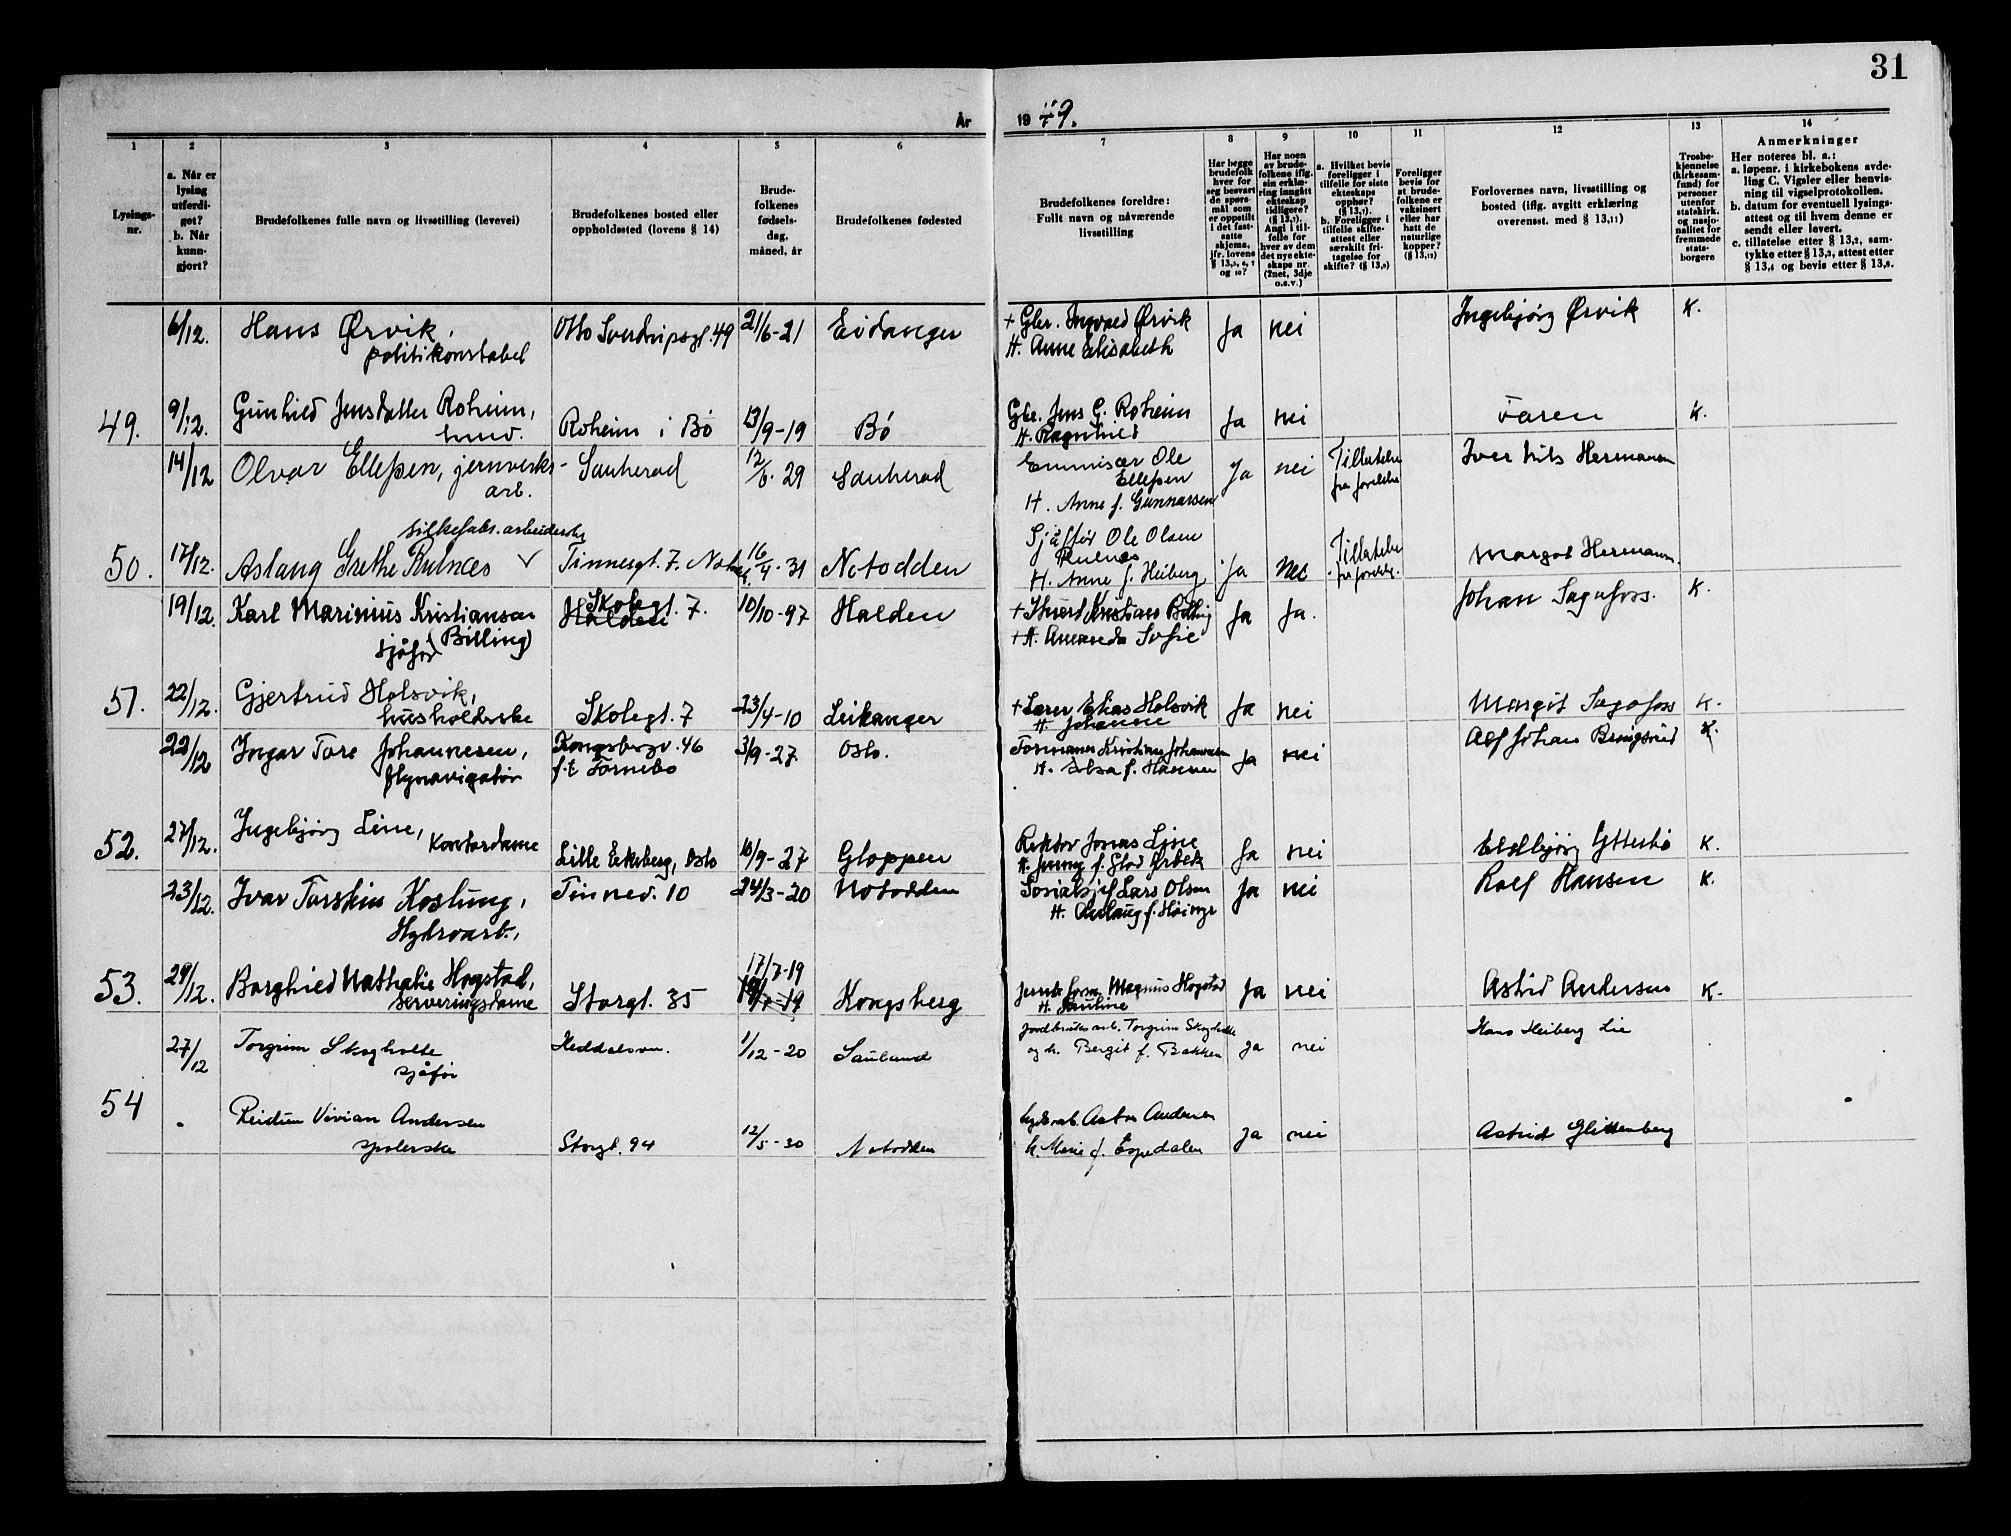 31
År
19 49.
1
2
3
4
5
6
7
8
9
10
11
12
13
14
Lysings-
nr.
a. Når er
lysing
utferdi-
get?
b. Når
kunn-
gjort?
Brudefolkenes fulle navn og livsstilling (levevei)
Brudefolkenes bosted eller
oppholdssted (lovens § 14)
Brude-
folkenes
fødsels-
dag,
måned, år
Brudefolkenes fødested
Brudefolkenes foreldre:
Fullt navn og nåværende
livsstilling
Har begge
brudefolk
hver for
seg besvart
de spørs-
mål som
er oppstilt
i det fast-
satte
skjema,
jfr. lovens
§ 13,5, 6, 7
og 10?
Har noen
av brude-
folkene iflg.
sin erklæ-
ring inngått
ekteskap
tidligere?
(§ 13,7).
Angi i til-
felle for
hver av dem
det nye ekte-
skaps nr.
(2net, 3dje
o.s.v.)
a. Hvilket bevis
foreligger i
tilfelle for siste
ekteskaps
opphør?
(§ 13,7).
b. Foreligger i
tilfelle skifte-
attest eller
særskilt fri-
tagelse for
skifte? (§ 13,8)
Foreligger
bevis for
at brude-
folkene er
vaksinert
eller har
hatt de
naturlige
kopper?
(§ 13,12)
Forlovernes navn, livsstilling og
bosted (iflg. avgitt erklæring
overensst. med § 13,11)
Trosbe-
kjennelse
(kirkesam-
fund) for
personer
utenfor
statskirk.
og nasjo-
nalitet for
fremmede
stats-
borgere
Anmerkninger
Her noteres bl. a.:
a. løpenr. i kirkebokens avde-
ling C. Vigsler eller henvis-
ning til vigselprotokollen.
b. datum for eventuell lysings-
attest og til hvem denne er
sendt eller levert.
c. tillatelse etter § 13,2, sam-
tykke etter § 13,3, attest etter
§ 13,4 og bevis etter § 13,6.
6/12. Hans Ørvik, Otto Sverdrupsgt. 49 21/6-21 Eidanger + Gbr. Ingvald Ørvik Ja nei Ingebjørg Ørvik K.
politikonstabel H. Anne Elisabeth
49. 9/12. Gunhild Jensdatter Roheim, Roheim i Bø 13/9-19 Bø Gbr. Jens G. Roheim Ja nei Faren K.
husd. H. Ragnhild
14/12 Olvar Ellefsen, jernverks- Sauherad 12/6-29 Sauherad Emmisær Ole Ja nei Tillatelse Iver Nils Hermansen
arb. Ellefsen fra foreldre
H. Anne f. Gunnarsen
silkefabr. arbeiderske Sjåfør Ole Olsen
50. 17/12. Aslaug Grethe Rulnæs ✓ Tinnegt. 7. 16/4-31 Notodden Rulnæs Ja Nei Tillatelse Margot Hermansen
H. Anne f. Heiberg fra foreldr.
19/12. Karl Marinius Kristiansen Skolegt. 7. 10/10-97 Halden + Kristians Billing Ja Ja. Johan Sagafoss. K.
(Billing) Halden
sjåfør + H. Amanda Sofie
51. 22/12. Gjertrud Holsvik, Skolegt. 7 23/4-10 Leikanger + Lærer Elias Holsvik Ja nei Margit Sagafoss K.
husholderske H. Johanne
22/12 Ingar Tore Johannesen, Kongsbergv. 46 3/9-27. Oslo. Formann Kristian Johannesen Ja nei Alf Johan K.
flynavigatør f.t Fornebo H. f. Hansen
52. 27/12. Ingebjørg Line, Lille Ekeberg, Oslo 10/9-27 Gloppen Rektor Jonas Line Ja nei Eldbjørg Ytterbø K.
Kontordame H. Jenny f.
23/12. Ivar Torstein Koslung, Tinnev. 10 24/3-20 Notodden Sosialsjef Lars Olsen Ja nei Rolf Hansen K.
Hydroarb., H. Aslaug f.
17/7-19
53. 29/12. Borghild Nathalie Hogstad, Storgt. 35 Kongsberg Magnus Hogstad Ja nei Astrid Andersen K.
Serveringsdame H. Pauline
27/12 Torgrim Skogholte Heddalsvn. 1/12-20 Sauland Jordbruksarb. Torgrim Skogholte Ja nei Hans Heiberg Lie
sjåfør og h. Bergit f. Bakken
54 Reidun Vivian Andersen Storgt. 94 12/5-30 Notodden hydroarb. Anton Andersen Ja nei Astrid Glittenberg
spolerske h. Marie f. Espedalen